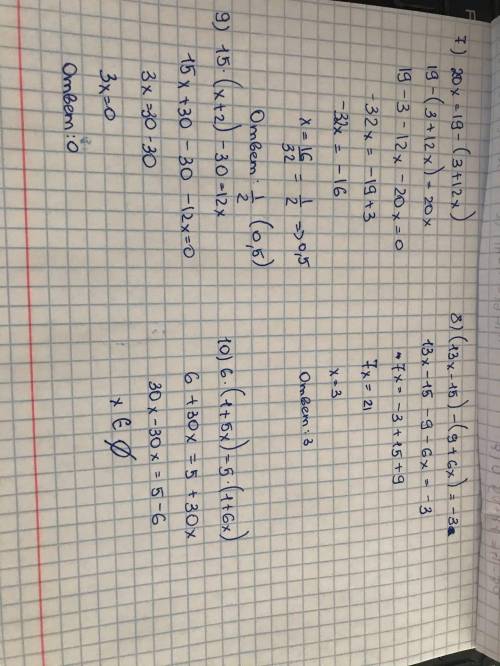 7) 20x = 19 - (3 + 12x)
19 - (3 + 12x) = 20x
19 - 3 - 12x - 20x = 0
-32x = -19 + 3
-32x = -16
x = 16/32 = 1/2 => 0,5
Ответ: 1/2 (0,5)
8) (13x - 15) - (9 + 6x) = -3x
13x - 15 - 9 - 6x = -3
7x = -3 + 15 + 9
7x = 21
x = 3
Ответ: 3
9) 15 · (x + 2) - 30 = 12x
15x + 30 - 30 - 12x = 0
3x = 30 - 30
3x = 0
Ответ: 0
10) 6 · (1 + 5x) = 5 · (1 + 6x)
6 + 30x = 5 + 30x
30x - 30x = 5 - 6
x ∈ ∅